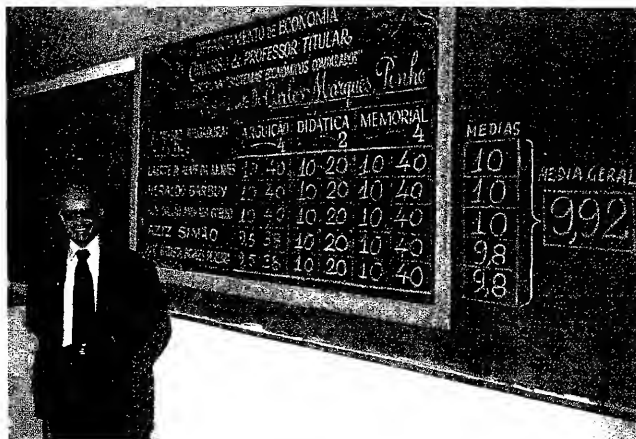 DEPARTAMENTO DE ECONOMIA
CONCURSO DE PROFESSOR TITULAR
"SISTEMAS ECONÔMICOS COMPARADOS"
Dr. Carlos Marques Pinho
ARGUIÇÃO DIDÁTICA MEMORIAL
4 2 4
10 40 10 20 10 40
HERALDO BARBUY 10 40 10 20 10 40
10 40 10 20 10 40
AZIZ SIMÃO 9.5 38 10 20 10 40
9.5 38 10 20 10 40
MEDIAS
10
10
10
9,8
9,8
MEDIA GERAL
9,92